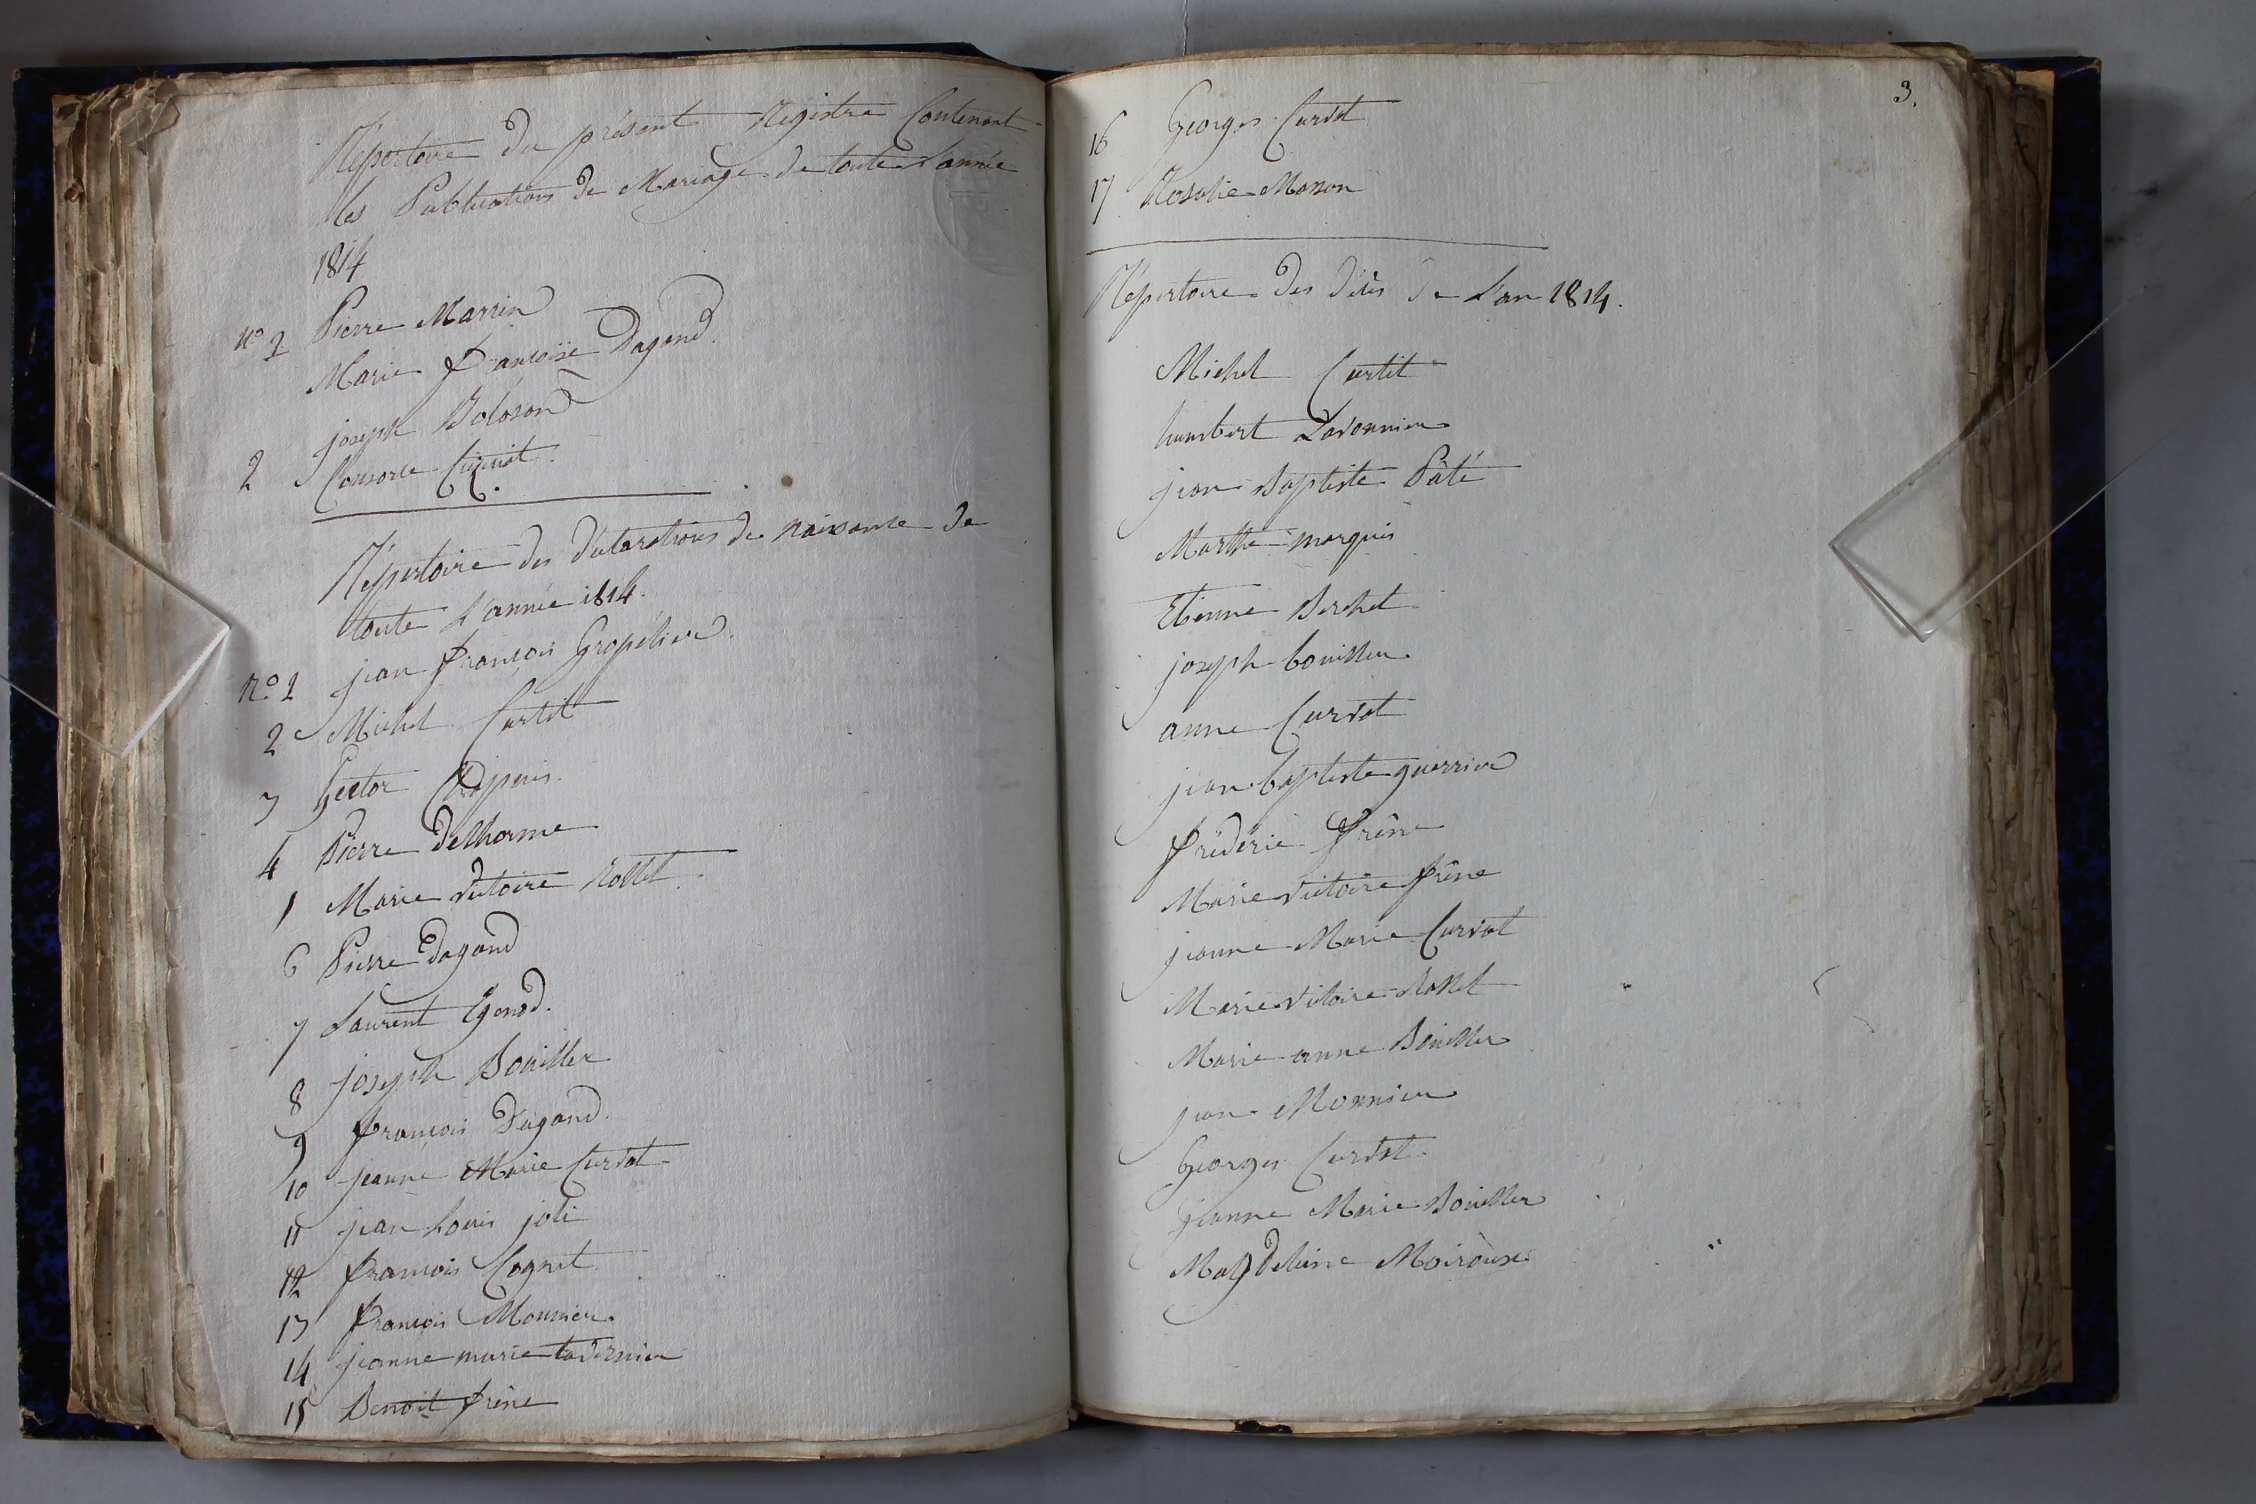 Répertoire du présent Registre Contenant
les Publications de Mariage de toute l'année
1814
n.o 1 Pierre Marrin
Marie françoise Dagand.
2 joseph Bolozon
Consorce Cuzniat.
Répertoire des déclarations de naissance de
toute l'année 1814.
n.o 1 jean françois Gropélier
2 Michel Curtil
3 hector
4 Pierre delhorme
5 Marie victoire rollet
6 Pierre dagand
7 Laurent Egond.
8 joseph Bouiller
9 françois Dagand.
10 jeanne Marie Curvat
11 jean Louis joli
12 françois Cognet
13 françois Monnier
14 jeanne marie tavernier
15 Benoit frêne
3.
16 Georges Curvat
17 Rosalie Masson
Répertoire des décès de l'an 1814.
Michel Curtil
humbert Lavonnier
jean Baptiste Pâté
Marthe marquis
Etienne Berchet
joseph bouiller
anne Curvat
jean baptiste guerrier
frédéric frêne
Marie victoire frêne
jeanne Marie Curvat
Marie victoire Rollet
Marie anne Bouiller
jean Monnier
Georges Curvat
jeanne Marie Bouiller
Magdeleine Moiroux